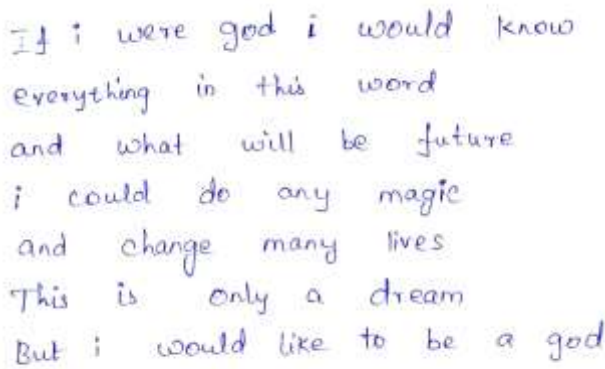 If i were god i would know
everything in this word
and what will be future
i could do any magic
and change many lives
This is only a dream
But i would like to be a god